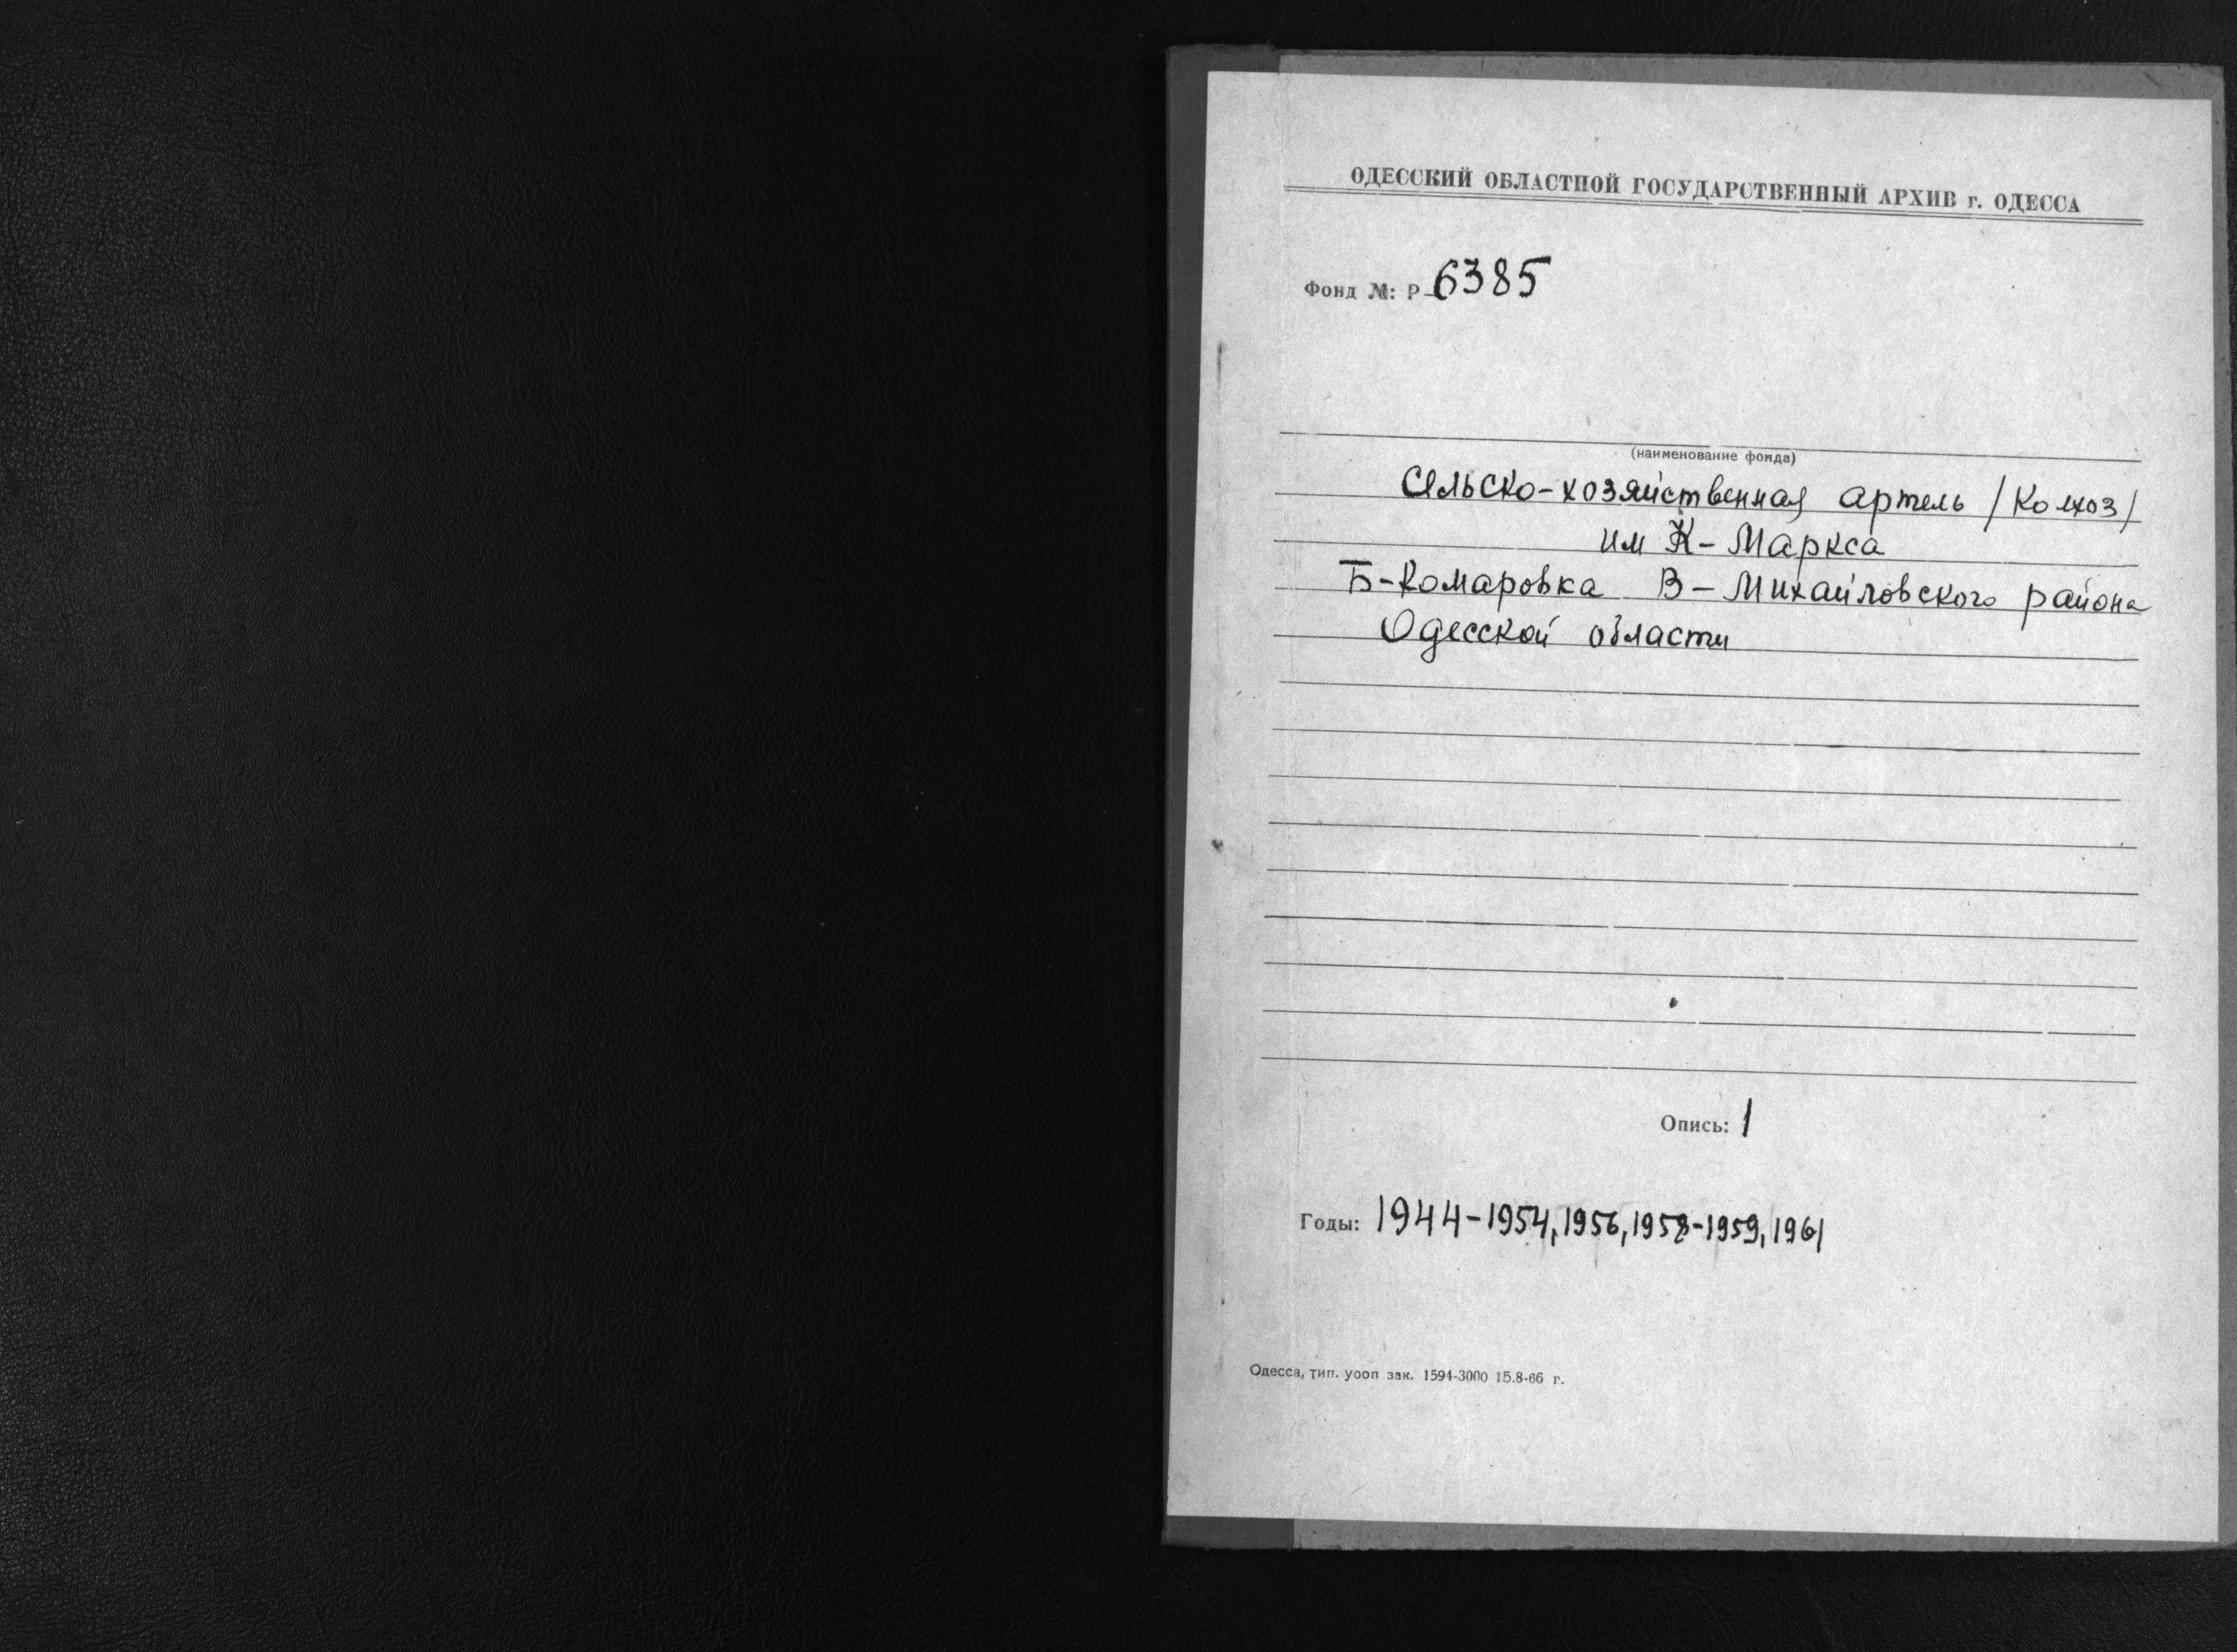 ОДЕССКИЙ ОБЛАСТНОЙ ГОСУДАРСТВЕННЫЙ АРХИВ г. ОДЕССА
Фонд №: Р-6385
(наименование фонда)
Сельско-хозяйственная артель /Колхоз/
им К-Маркса
Б-Комаровка В-Михайловского района
Одесской области
Опись: 1
Годы: 1944-1954, 1956, 1958-1959, 1961
Одесса, тип. уооп зак. 1594-3000 15.8-66 г.